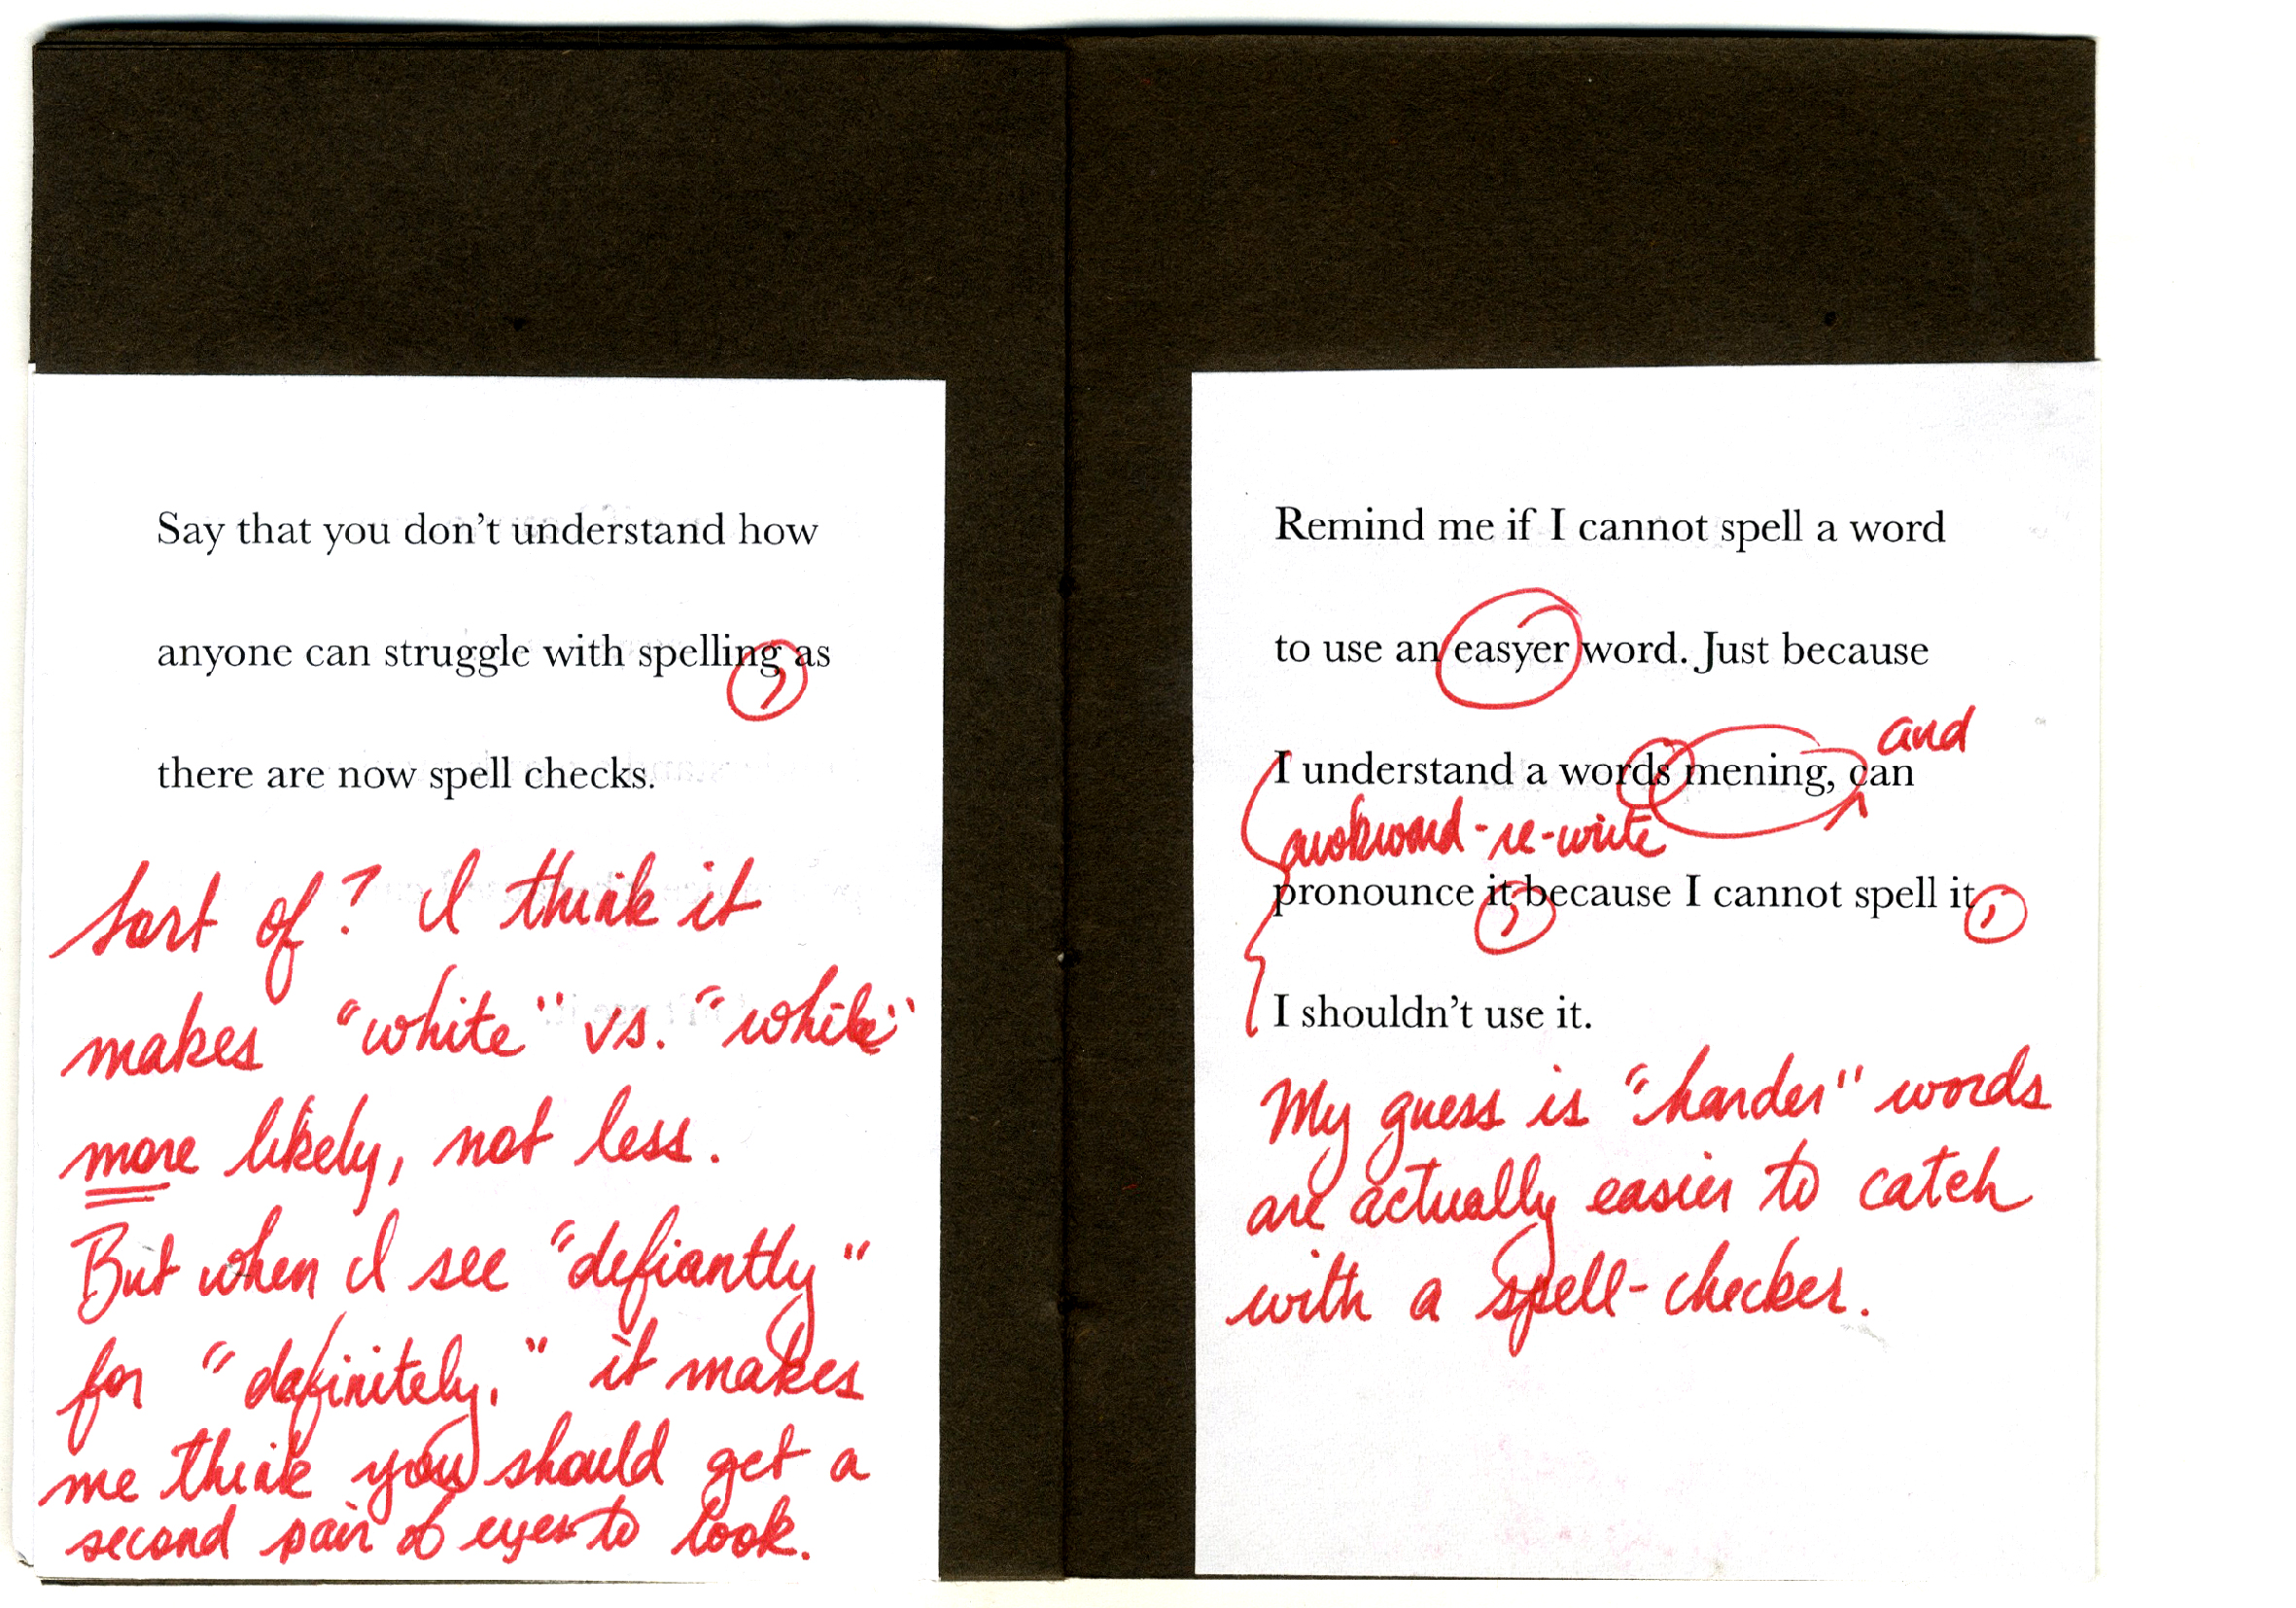 Say that you don't understand how
anyone can struggle with spelling, as
there are now spell checks.
Sort of? I think it
makes "white" vs. "while"
more likely, not less.
But when I see "defiantly"
for "definitely," it makes
me think you should get a
second pair of eyes to look.
Remind me if I cannot spell a word
to use an easyer word. Just because
and
I understand a words mening, can
awkward-re-write
pronounce it, because I cannot spell it,
I shouldn't use it.
My guess is "harder" words
are actually easier to catch
with a spell-checker.